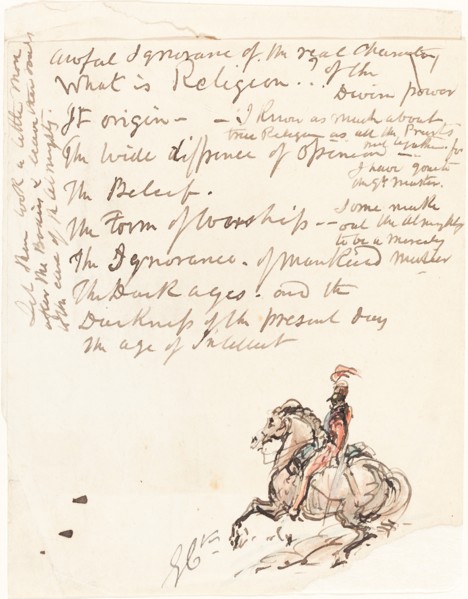 awful Ignorance of the real Character
of the
Divine power
What is Religion . . ?
It origin –
– I know as much about
true Religion as all the Priests
put together – for
I have gone to
the Gt Master.
The wide difference of Opinion –
The Belief.
The Form of Worship –
Some make
out the Almighty
to be a
Master
The Ignorance of Mankind
The Dark ages. and the
Darkness of the present day
The age of Intellect
Let them look a little more
after the Bodies & leave their souls
to the care of the Almighty –